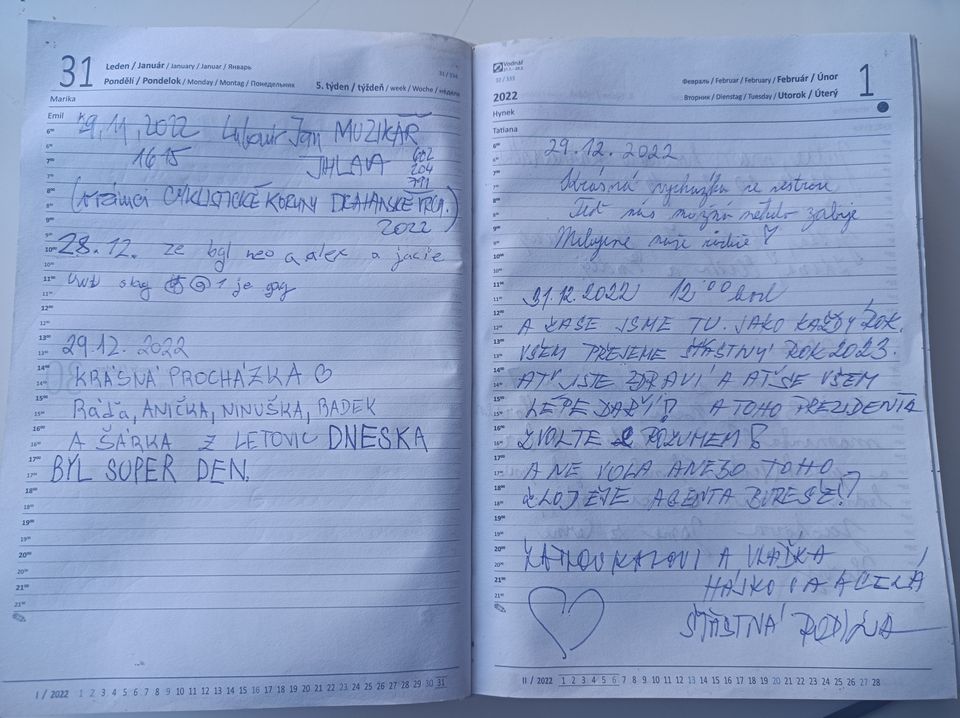 31
Leden / Január / January / Januar / Январь
Pondělí / Pondelok / Monday / Montag / Понедельник
31 / 334
5. týden / týždeň / week / Woche / неделя
Marika
Emil
29, 11, 2022 Lubomír Jan MUZIKÁŘ
1615 JIHLAVA 602
204
791
(v rámci CYKLISTICKÉ KORUNY DRAHANSKÉ VRCH.)
2022
28.12. ze byl neo a alex a
je gay
29.12. 2022
KRÁSNÁ PROCHÁZKA ♡
Ráďa, ANIČKA, NINUŠKA, RADEK
A ŠÁRKA Z LETOVIC DNESKA
BYL SUPER DEN.
I / 2022 1 2 3 4 5 6 7 8 9 10 11 12 13 14 15 16 17 18 19 20 21 22 23 24 25 26 27 28 29 30 31
Vodnář
32 / 333
2022
Февраль / Februar / February / Február / Únor
Вторник / Dienstag / Tuesday / Utorok / Úterý
1
Hynek
Tatiana
29.12. 2022
Krásná vycházka se sestrou
Teď nás možná někdo zabije
Milujeme naše rodiče ♡
31.12.2022 12:00 hod
A ZASE JSME TU. JAKO KAŽDÝ ROK.
VŠEM PŘEJEME ŠŤASTNÝ ROK 2023.
AŤ JSTE ZDRAVÍ A AŤ SE VŠEM
LÉPE DAŘÍ! A TOHO PREZIDENTA
ZVOLTE Z ROZUMEM!
A NE VOLA ANEBO TOHO
ZLODĚJE AGENTA BUREŠE!
A VLAĎKA
ŠŤASTNÁ RODINA
II / 2022 1 2 3 4 5 6 7 8 9 10 11 12 13 14 15 16 17 18 19 20 21 22 23 24 25 26 27 28